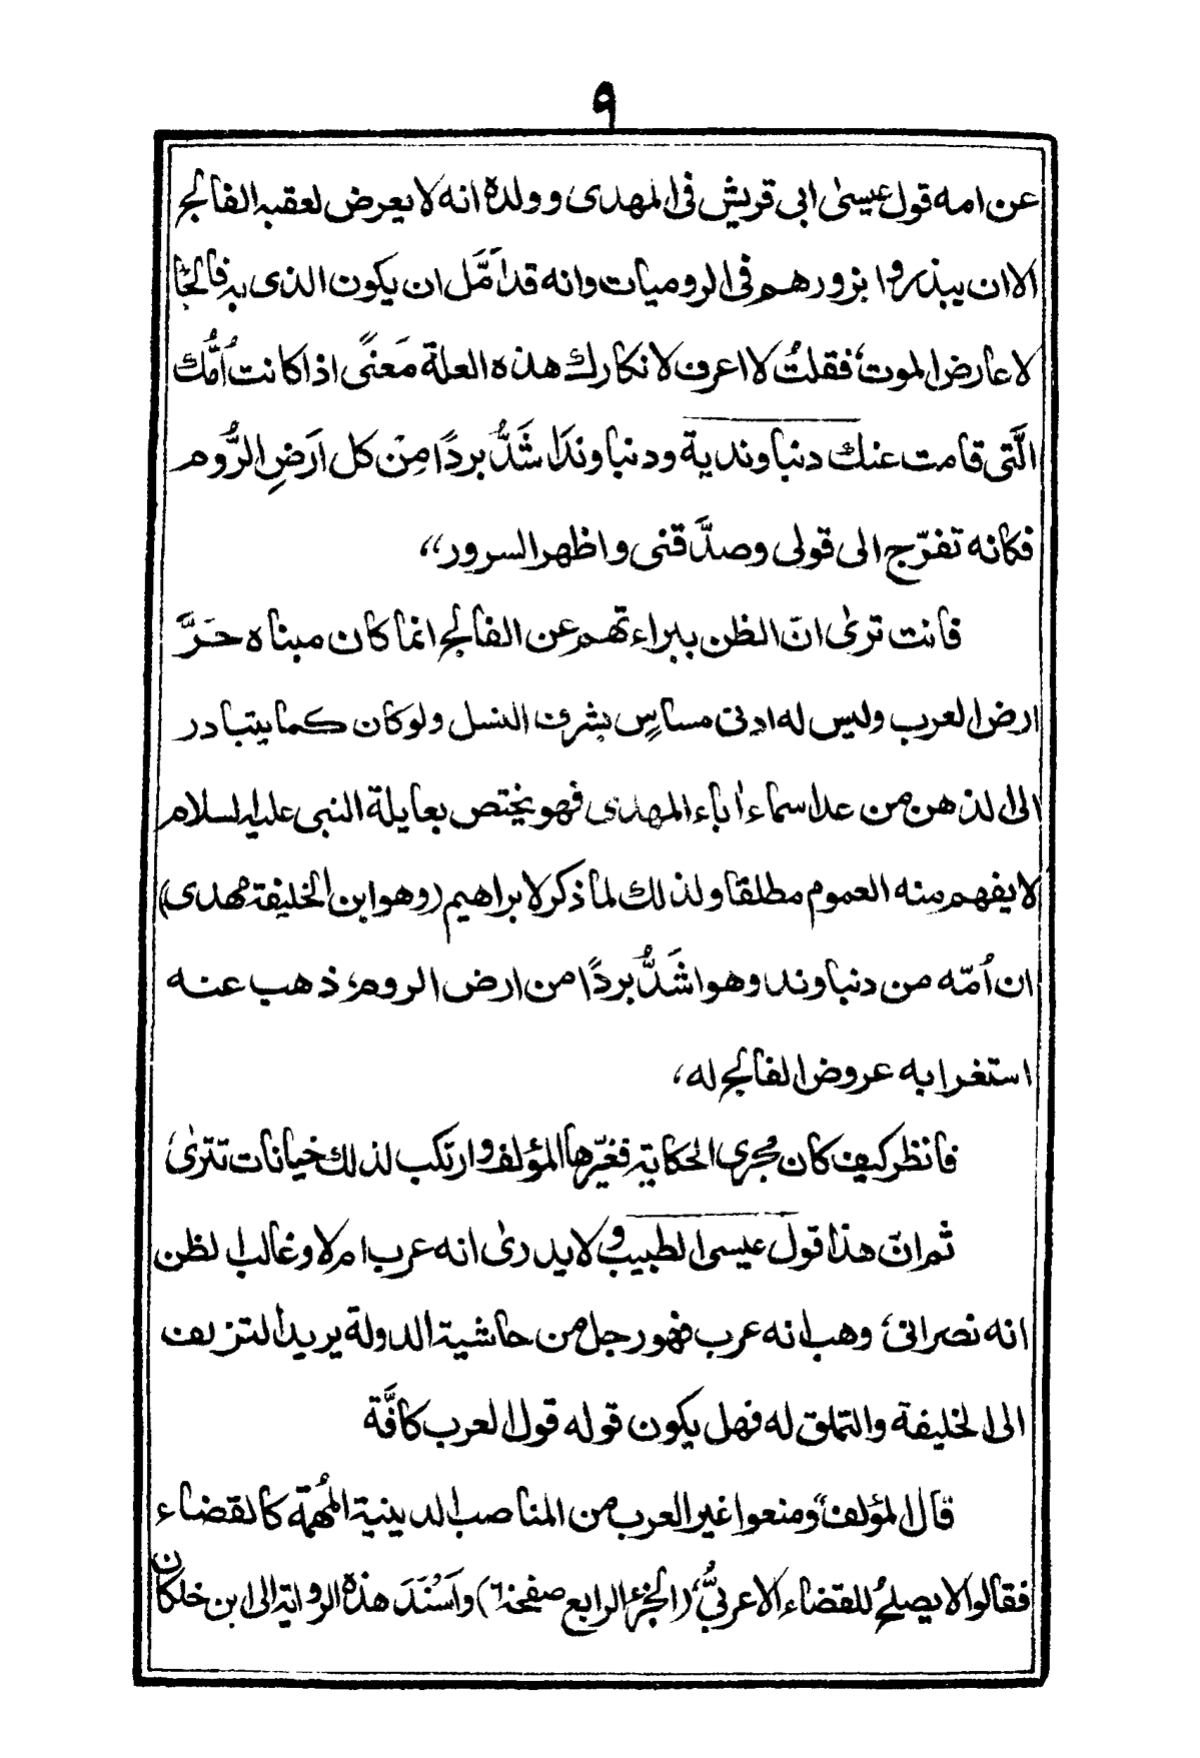 ٩
عن امه قول عيسىٰ ابى قريش فى المهدى وولده انه لا يعرض لعقبه الفالج
الا ان يبذروا بزورهم فى الروميات وانه قد اَمَّل ان يكون الذى به فالجًا
لا عارض الموت، فقلتُ لا اعرف لانكارك هذه العلة مَعنًى اذا كانت اُمُّك
الَّتى قامت عنك دنباوندية ودنباوند اَشَدُّ بردًا مِنْ كل اَرضِ الرُّوم
فكانه تفرّج الى قولى وصدَّقنى واظهر السرور،،
فانت ترىٰ انّ الظن ببراءتهم عن الفالج انما كان مبناه حَرَّ
ارض العرب وليس له ادنى مساسٍ بشرف النسل ولو كان كما يتبادر
الى الذهن من عد اسماء اٰباء المهدى فهو يختص بعايلة النبى عليه السلام
لا يفهم منه العموم مطلقا ولذلك لما ذكر لابراهيم (وهو ابن الخليفة مهدى)
ان اُمّه من دنباوند وهو اشَدُّ بردًا من ارض الروم، ذهب عنه
استغرابه عروض الفالج له،
فانظر كيف كان مجرى الحكاية فغيّرها المؤلف وارتكب لذلك خيانات تترىٰ،
ثم انّ هذا قول عيسى الطبيب ولا يدرىٰ انه عرب ام لا وغالب الظن
انه نصرانى، وهب انه عرب فهو رجل من حاشية الدولة يريد التزلف
الى الخليفة والتملق له فهل يكون قوله قول العرب كافَّة
قال المؤلف "ومنعوا غير العرب من المناصب الدينية المُهمة كالقضاء
فقالوا لا يصلحُ للقضاء الا عربىُّ،، (الجزء الرابع صفحة ٦) واَسْنَدَ هذه الرواية الى ابن خلكان